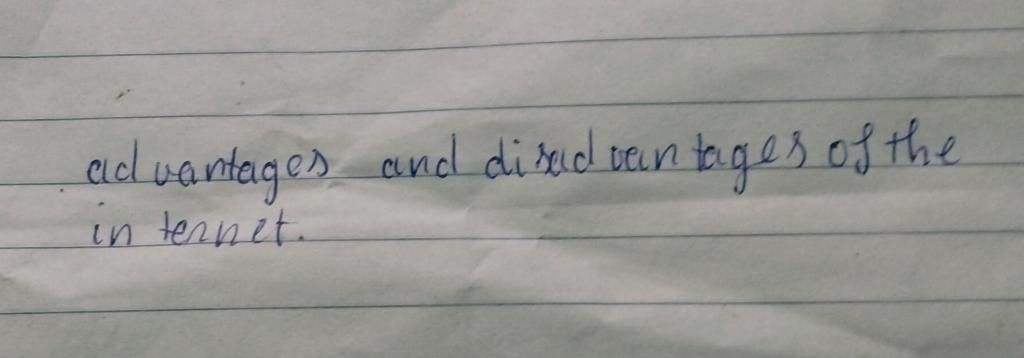 advantages and disadvantages of the
internet.